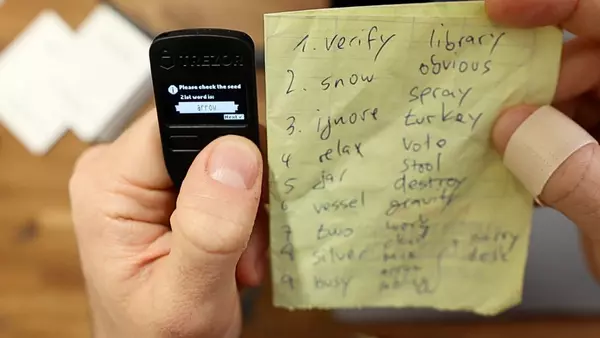 TREZOR
Please check the seed
21st word is:
arrow
1. verify library
obvious
2. snow
spray
3. ignore turkey
4 relax
stool
5 jar destroy
6 vessel gravity
7 two
8 silver
desk
9 busy